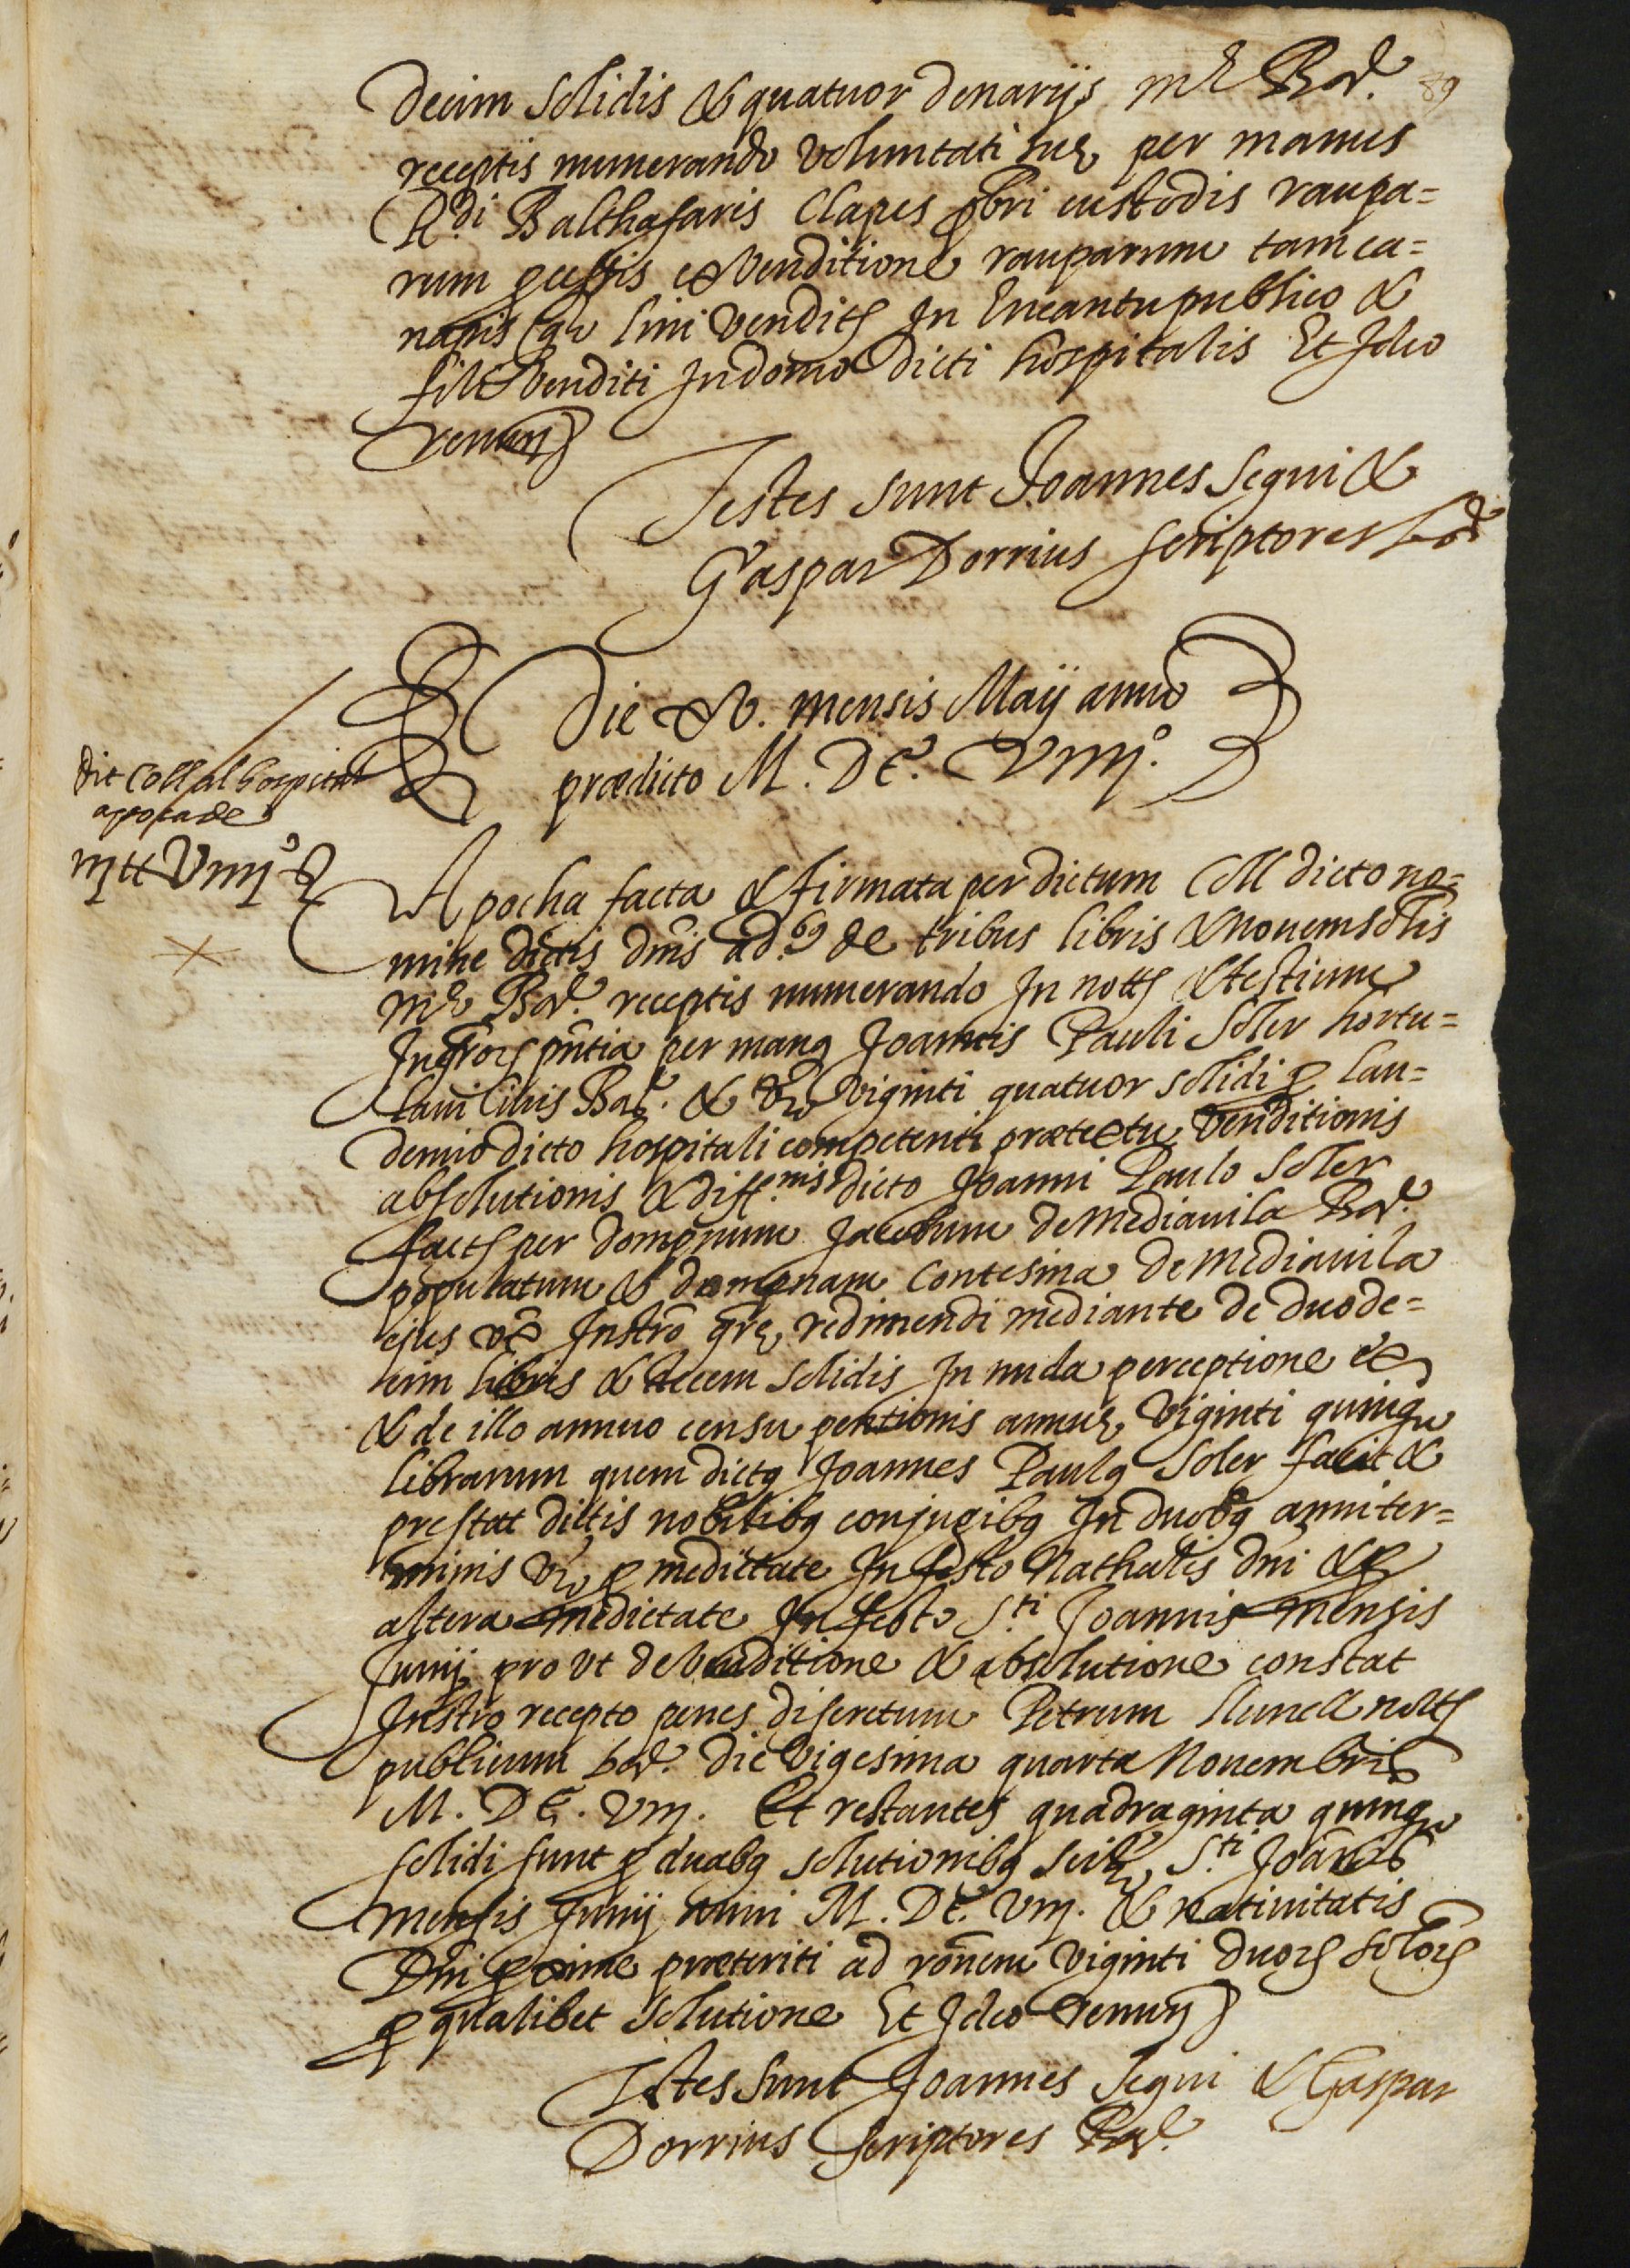 89
Decim solidis & quatuor denarijs mę Barˡ.
receptis numerando voluntati suę per manus
Rdi Balthasaris Clapes pbri custodis raupa=
rum processis ex venditione rauparum tam ca=
napis q̃ lini vendit In Encantu publico &
fili venditi In domo dicti hospitalis Et Ideo
renun
Testes sunt Joannes Segui &
Gaspar Dorrius scriptores bar
Die XV. mensis Maij anno
prædicto M. DC. VIIIJº.
Dit Coll al hospital
apoca de
iij ll VIIIJº s
Apocha facta & firmata per dictum Coll dicto no=
mine dictis dnis ad.bq de tribus libris & novem solis
mę Barˡ. receptis numerando In notii & testium
Infror pñtia per manq Joannis Pauli Soler hortu=
lani civis Barˡ. & sũt viginti quatuor solidi p lau=
demio dicto hospitali competenti prætextu venditionis
absolutionis & diff.nis dicto Joanni Paulo Soler
fact per dompnum Jacobum de Mediavila Barˡ.
populatum & dompnam Contesina de Mediavila
ejus vẽ Instrõ grę redimendi mediante de duode=
cim libris & decem solidis In nuda perceptione &
& de illo annuo censu pentionis annuę viginti quinq
librarum quem dictq Joannes Paulq Soler facit &
prestat dictis nobilibq conjugibq In duobq anni ter=
minis vĩz p medietate In festo Nathalis dñi & p
altera medietate In festo Sti Joannis mensis
Junij pro vt de venditione & absolutione constat
Instrõ recepto penes discretum Petrum Llunell notii
publicum barˡ. die vigesima quarta Novembris
M. DC. VIIJ. Et restantes quadraginta quinq
solidi sunt p duabq solutionibq scilt Sti Joãnis
mensis Junij anni M. DC. VIIJ. & nativitatis
Dñi proxime præteriti ad rõnem viginti duor solor
p qualibet solutione Et Ideo renun
Testes sunt Joannes Segui & Gaspar
Dorrius scriptores Barˡ.